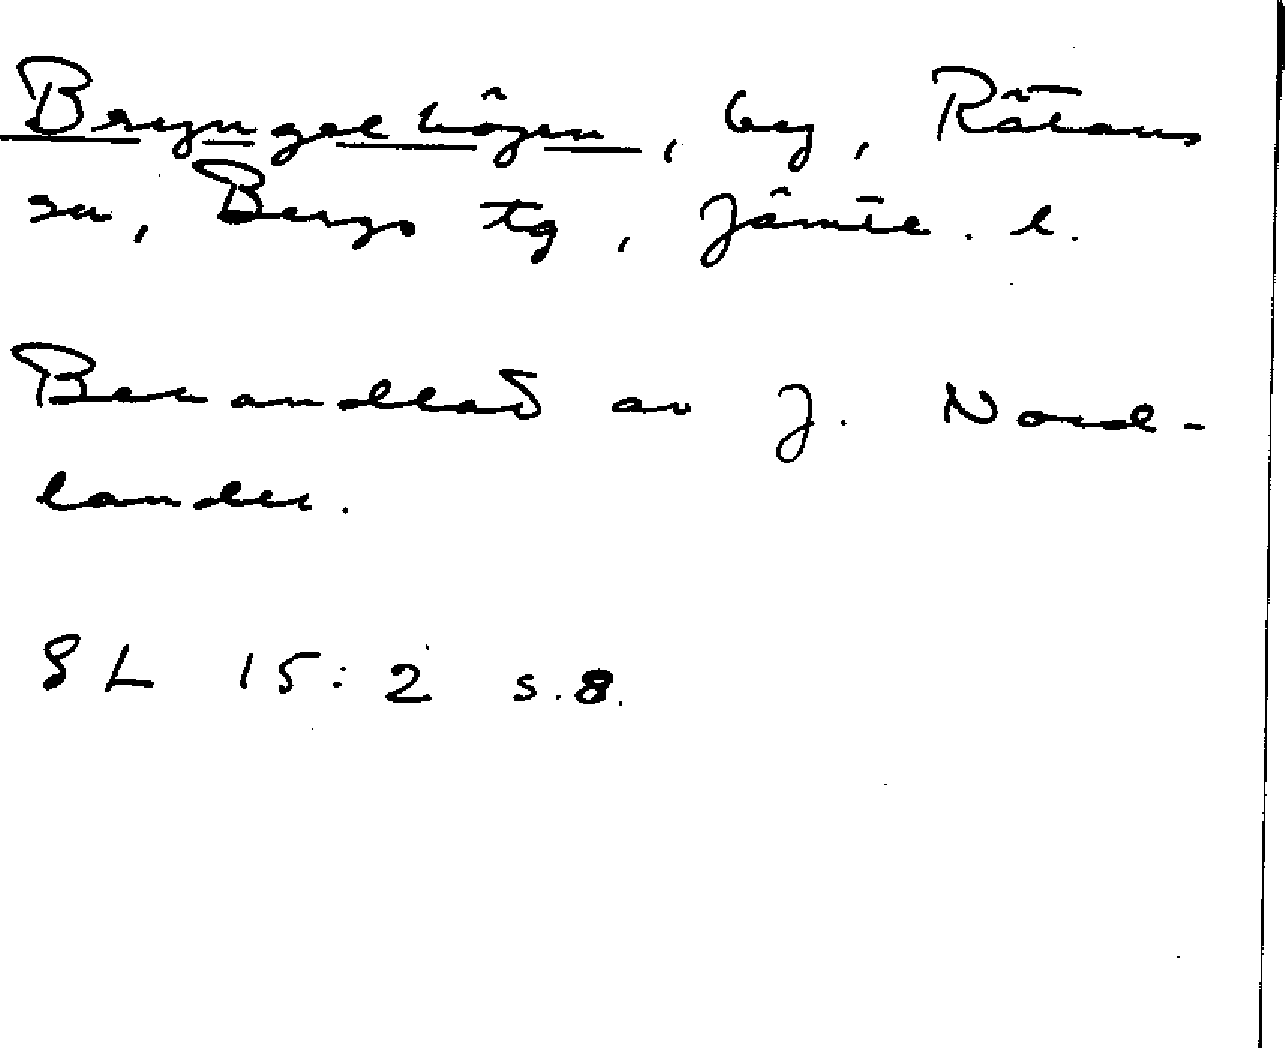 Bryngelhögen, by, Rätans
sn, Bergs tg, Jämtl. l.
Behandlad av J. Nord-
lander.
SL 15:2 s.8.